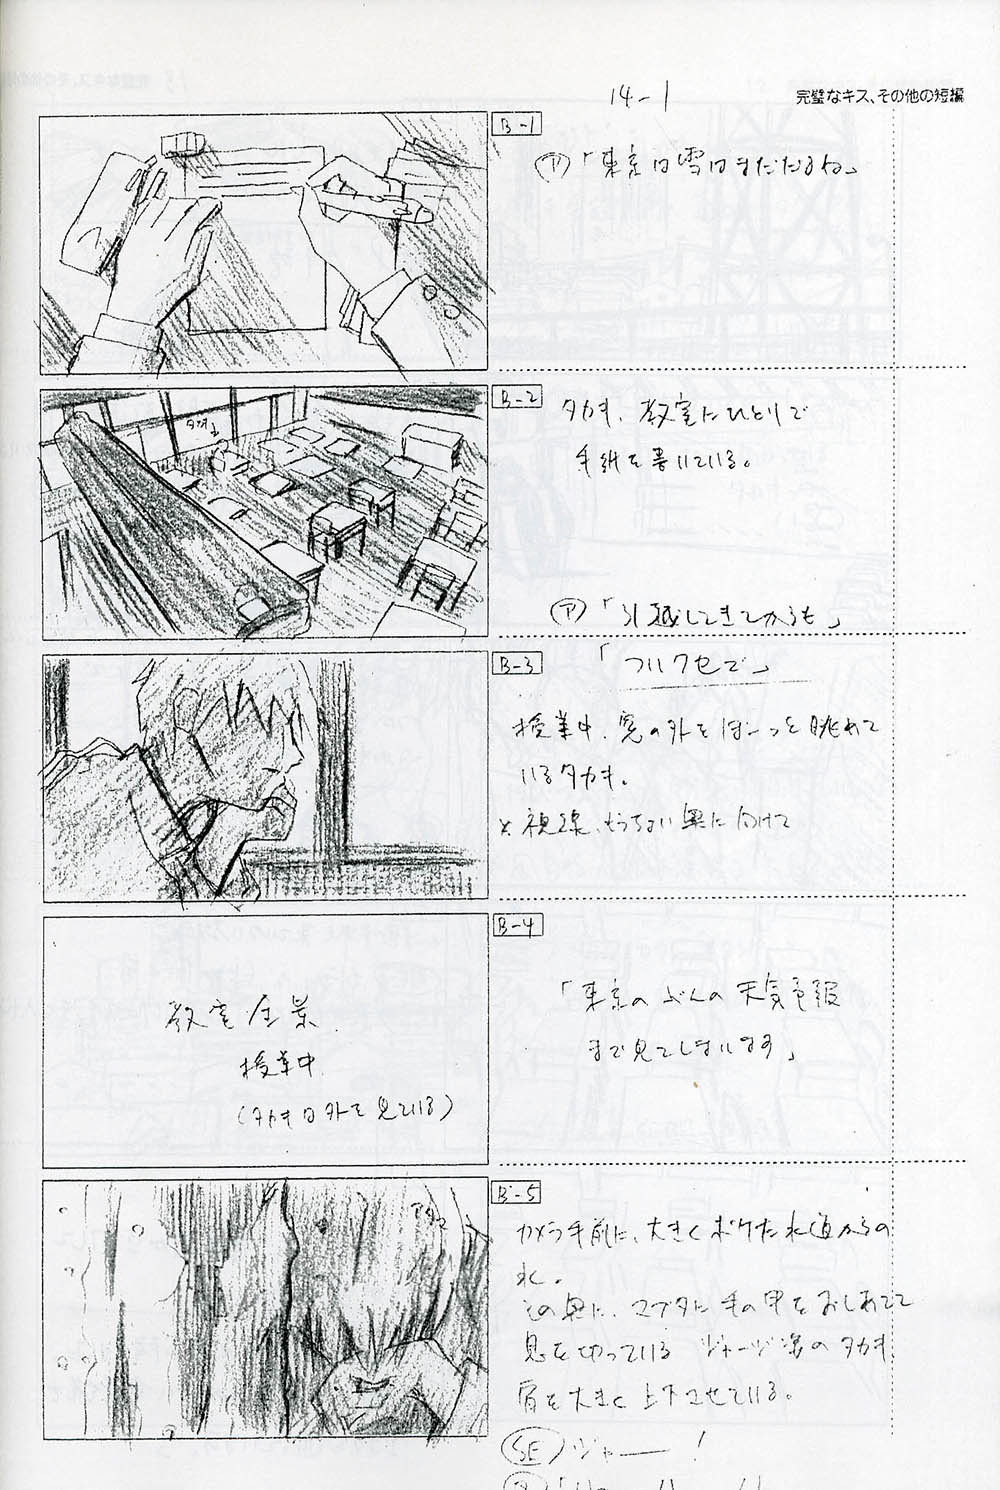 14-1
完璧なキス、その他の短編
B-1
(ア)「東京は雪はまだだよね」
B-2
タカキ
タカキ、教室にひとりで
手紙を書いている。
(ア)「引越してきてからも」
B-3
「ついクセで」
授業中、窓の外をぼーっと眺めて
いるタカキ。
視線、もうちょい奥に向けて
B-4
教室全景
授業中
(タカキは外を見ている)
「東京のぶんの天気予報
まで見てしまいます」
B-5
カメラ手前に、大きくボケた水道からの
水。
その奥に、マブタに手の甲をおしあてて
息を切っている ジャージ姿のタカキ。
肩を大きく上下させている。
(SE)ジャー――!